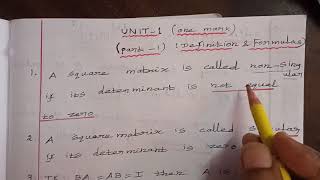 UNIT-1 (one mark)
(part-1) : Definition & Formulas)
1. A square matrix is called non-singular
if its determinant is not equal
to zero
2. A square matrix is called singular
if its determinant is zero
3. If BA=AB=I then A is